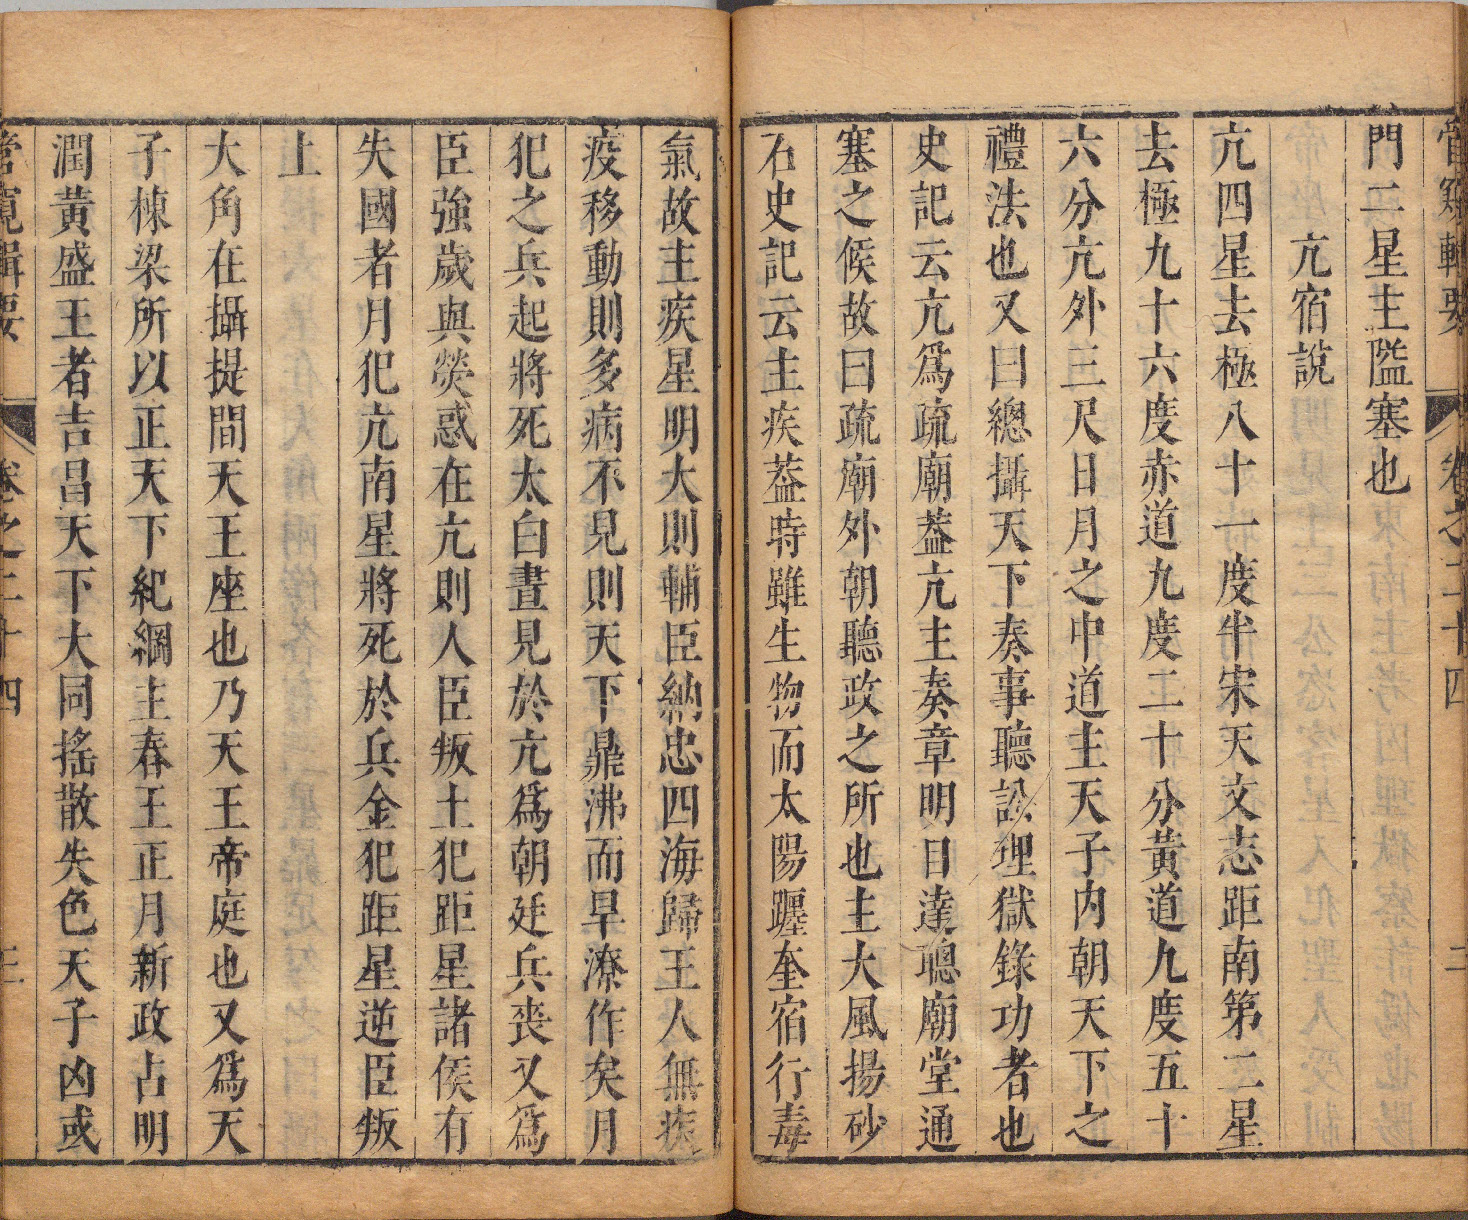 管窺輯要 卷之二十四 二
門二星主隘塞也
亢宿說
亢四星去極八十一度半宋天文志距南第二星
去極九十六度赤道九度二十分黃道九度五十
六分亢外三尺日月之中道主天子內朝天下之
禮法也又曰總攝天下奏事聽訟理獄錄功者也
史記云亢爲疏廟葢亢主奏章明目達聰廟堂通
塞之候故曰疏廟外朝聽政之所也主大風揚砂
石史記云主疾葢時雖生物而太陽躔奎宿行毒
氣故主疾星明大則輔臣納忠四海歸王人無疾
疫移動則多病不見則天下鼎沸而旱潦作矣月
犯之兵起將死太白晝見於亢爲朝廷兵喪又爲
臣強歲與熒惑在亢則人臣叛土犯距星諸侯有
失國者月犯亢南星將死於兵金犯距星逆臣叛
上
大角在攝提間天王座也乃天王帝庭也又爲天
子棟梁所以正天下紀綱主春王正月新政占明
潤黃盛王者吉昌天下大同搖散失色天子凶或
管窺輯要 卷之二十四 三